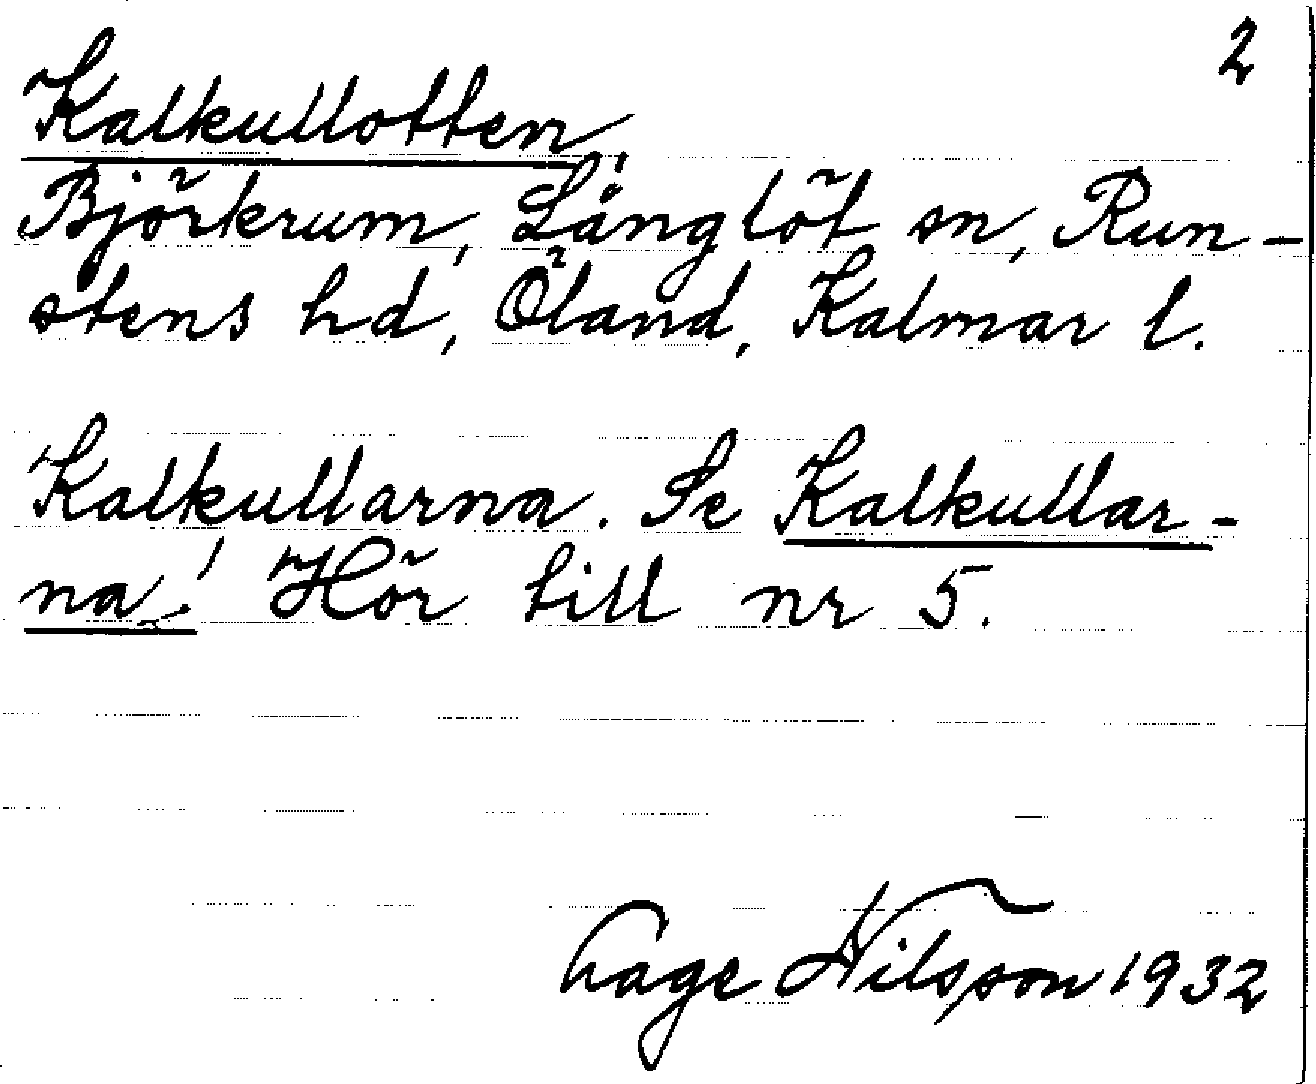 2
Kalkullotten,
Björkrum, Långlöt sn, Run-
stens hd, Öland, Kalmar l.
Kalkullarna. Se Kalkullar-
na! Hör till nr 5.
Aage Nilsson 1932